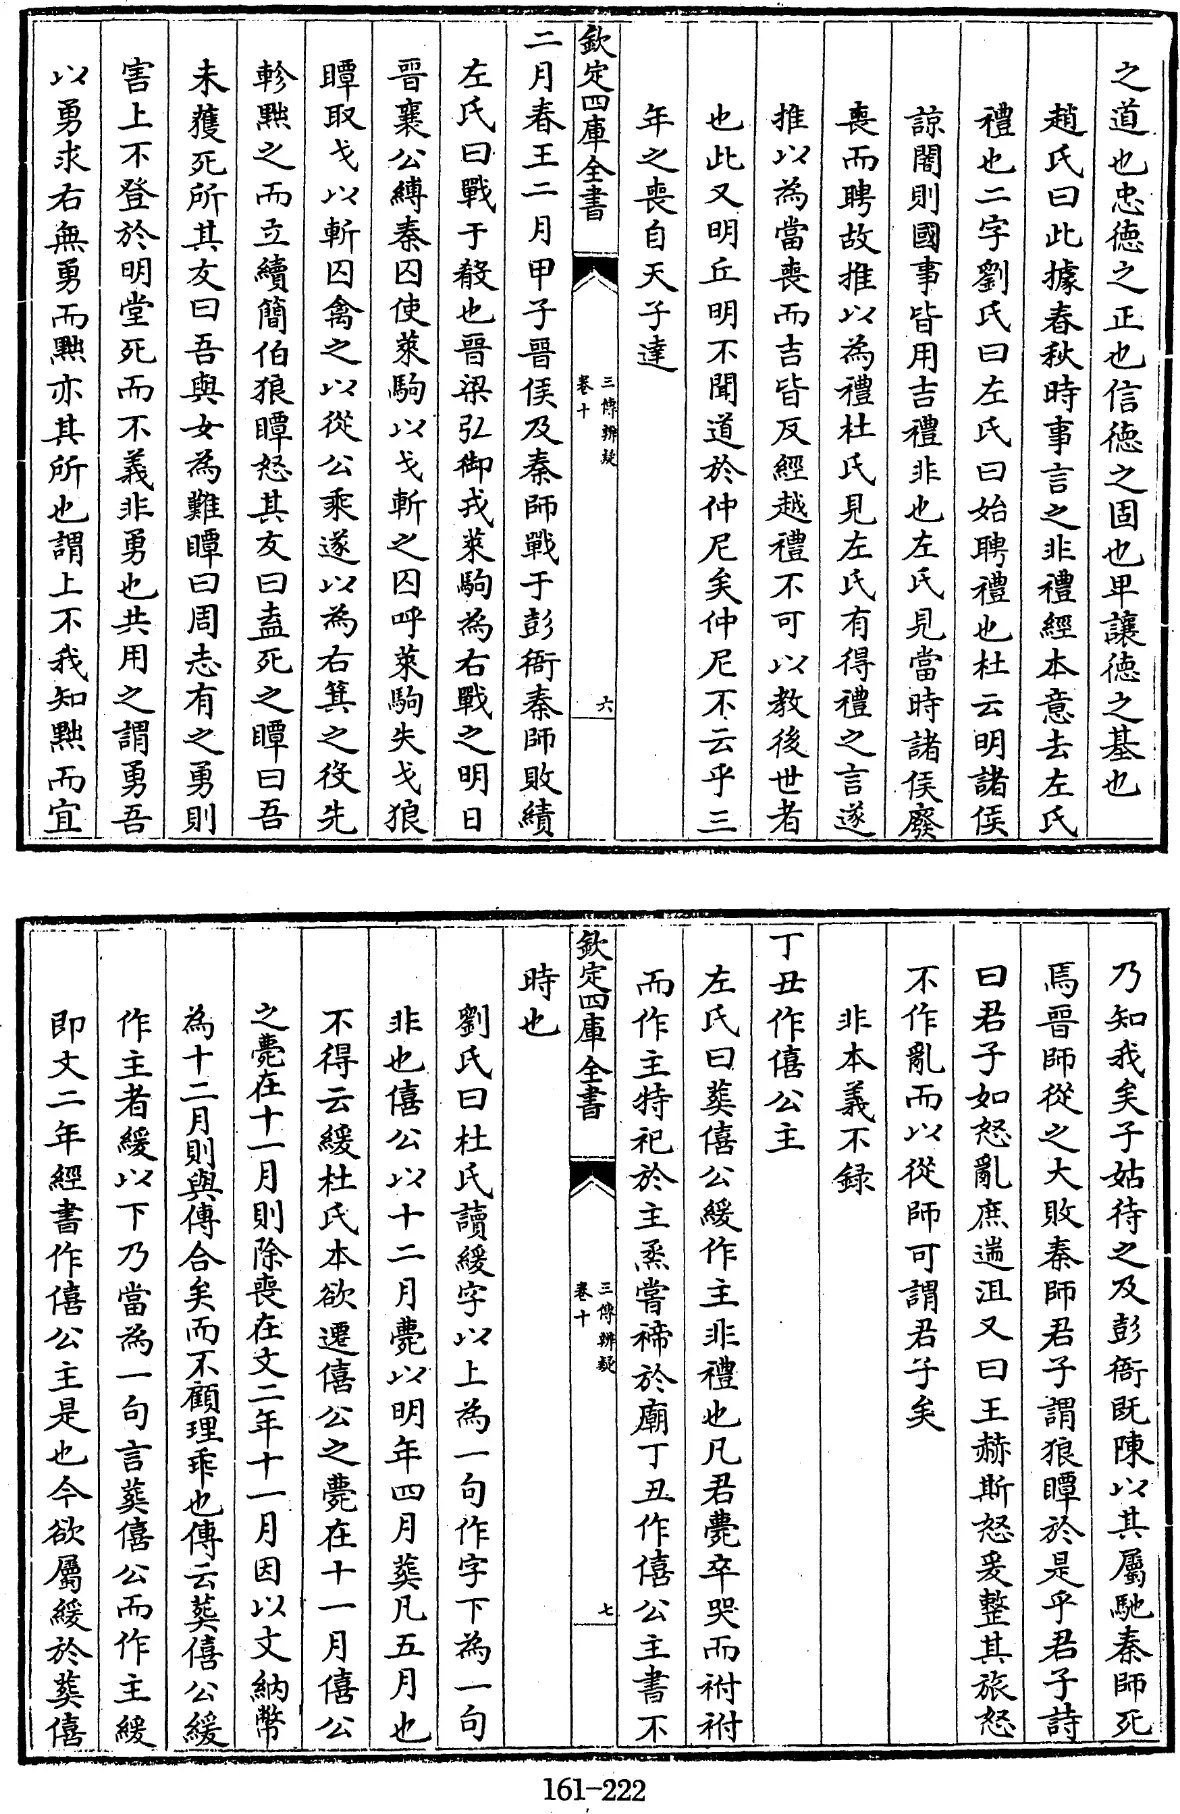 之道也忠德之正也信德之固也卑讓德之基也
趙氏曰此據春秋時事言之非禮經本意去左氏
禮也二字劉氏曰左氏曰始聘禮也杜云明諸侯
諒闇則國事皆用吉禮非也左氏見當時諸侯廢
喪而聘故推以為禮杜氏見左氏有得禮之言遂
推以為當喪而吉皆反經越禮不可以教後世者
也此又明丘明不聞道於仲尼矣仲尼不云乎三
年之喪自天子達
欽定四庫全書
三傳辨疑
卷十
六
二月春王二月甲子晉侯及秦師戰于彭衙秦師敗績
左氏曰戰于殽也晉梁弘御戎萊駒為右戰之明日
晉襄公縛秦囚使萊駒以戈斬之囚呼萊駒失戈狼
瞫取戈以斬囚禽之以從公乘遂以為右箕之役先
軫黜之而立續簡伯狼瞫怒其友曰盍死之瞫曰吾
未獲死所其友曰吾與女為難瞫曰周志有之勇則
害上不登於明堂死而不義非勇也共用之謂勇吾
以勇求右無勇而黜亦其所也謂上不我知黜而宜
乃知我矣子姑待之及彭衙既陳以其屬馳秦師死
焉晉師從之大敗秦師君子謂狼瞫於是乎君子詩
曰君子如怒亂庶遄沮又曰王赫斯怒爰整其旅怒
不作亂而以從師可謂君子矣
非本義不録
丁丑作僖公主
左氏曰葬僖公緩作主非禮也凡君薨卒哭而祔祔
而作主特祀於主烝嘗禘於廟丁丑作僖公主書不
欽定四庫全書
三傳辨疑
卷十
七
時也
劉氏曰杜氏讀緩字以上為一句作字下為一句
非也僖公以十二月薨以明年四月葬凡五月也
不得云緩杜氏本欲遷僖公之薨在十一月僖公
之薨在十一月則除喪在文二年十一月因以文納幣
為十二月則與傳合矣而不顧理乖也傳云葬僖公緩
作主者緩以下乃當為一句言葬僖公而作主緩
即文二年經書作僖公主是也今欲屬緩於葬僖
161-222